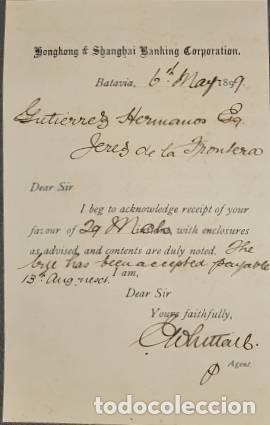 Hongkong & Shanghai Banking Corporation.
Batavia, 6th May 1899.
Gutierrez Hermanos Eq.
Jerez de la Frontera
Dear Sir
I beg to acknowledge receipt of your
favour of 29 March, with enclosures
as advised, and contents are duly noted. The
bge has been accepted payable
13th Aug next. I am,
Dear Sir
Yours faithfully,
Agent.
todocoleccion
todocoleccion.net